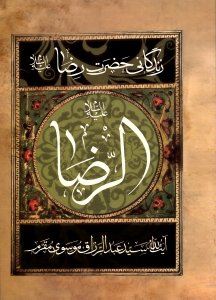 زندگانی حضرت رضا علیه السلام
علیه السلام
الرّضا
آیت الله سید عبدالرزاق موسوی مقرم